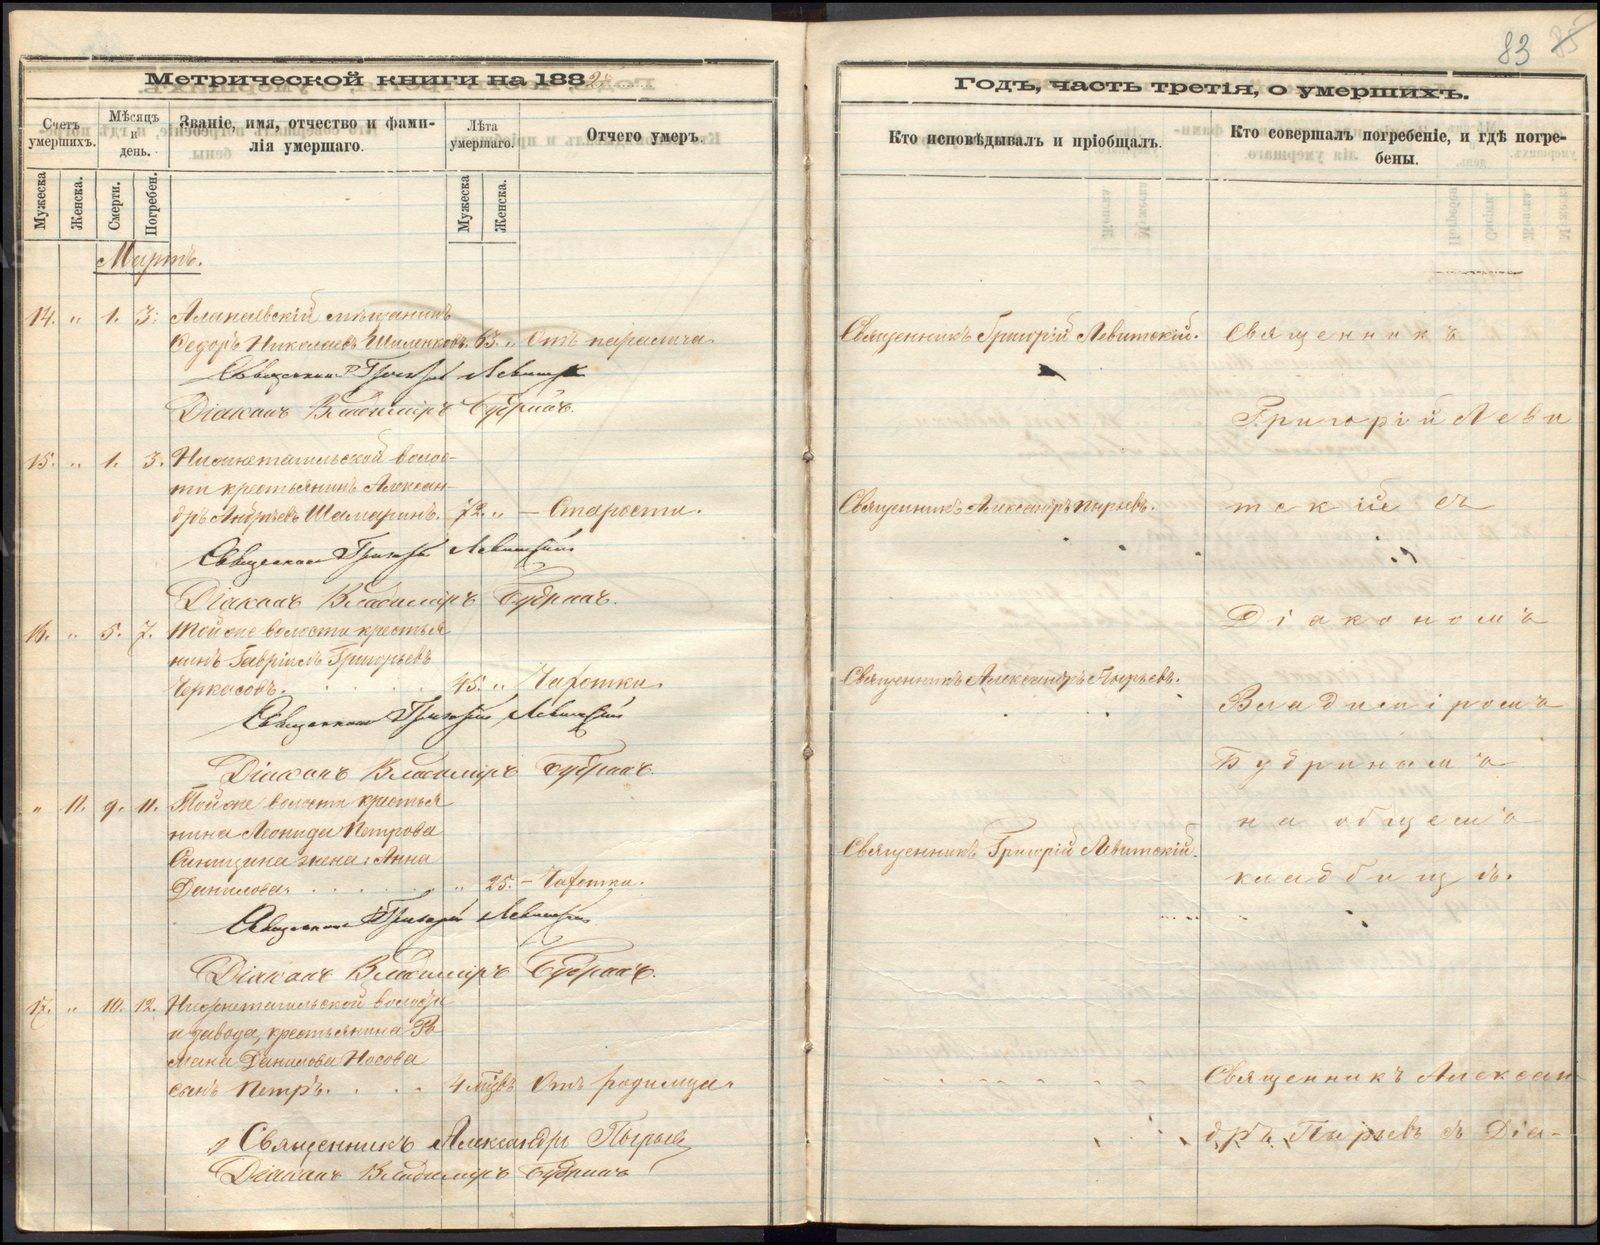 83 85
Метрической книги на 1882
Счетъ умершихъ.
Мѣсяцъ и день.
Званіе, имя, отчество и фами-
лія умершаго.
Лѣта умершаго.
Отчего умеръ.
Мужеска
Женска.
Смерти.
Погребен.
Мужеска
Женска.
Мартъ.
14. „ 1. 3. Алапаевскій мѣщанинъ
Ѳедоръ Николаевъ Шиленковъ. 63. „ Отъ паралича
Священникъ Григорій Левитскій
Діаконъ Владиміръ Будринъ.
15. „ 1. 3. Нижнетагильской волос-
ти крестьянинъ Алексан-
дръ Андреевъ Шамаринъ. 72. „ — Старости.
Священникъ Григорій Левитскій
Діаконъ Владиміръ Будринъ.
16. „ 5. 7. Той же волости крестья
нинъ Гавріилъ Григорьевъ
Черкасовъ. 45. „ Чахотки.
Священникъ Григорій Левитскій
Діаконъ Владиміръ Будринъ.
„ 11. 9. 11. Той же волости крестья
нина Леонида Петрова
Синицина жена Анна
Данилова. „ 25. — Чахотки.
Священникъ Григорій Левитскій
Діаконъ Владиміръ Будринъ.
17. „ 10. 12. Нижнетагильской волости
и завода, крестьянина Ро
мана Данилова Носова
сынъ Петръ. 4 мѣс. Отъ родимца.
Священникъ Александръ Пырьевъ
Діаконъ Владиміръ Будринъ
Годъ, часть третія, о умершихъ.
Кто исповѣдывалъ и пріобщалъ.
Кто совершалъ погребеніе, и гдѣ погре-
бены.
Священникъ Григорій Левитскій.
Священникъ Александръ Пырьевъ.
Священникъ Александръ Пырьевъ.
Священникъ Григорій Левитскій.
Священникъ
Григорій Леви
тскій съ
Діакономъ
Владиміромъ
Будринымъ
на общемъ
кладбищѣ.
Священникъ Алексан
дръ Пырьевъ съ Діа-